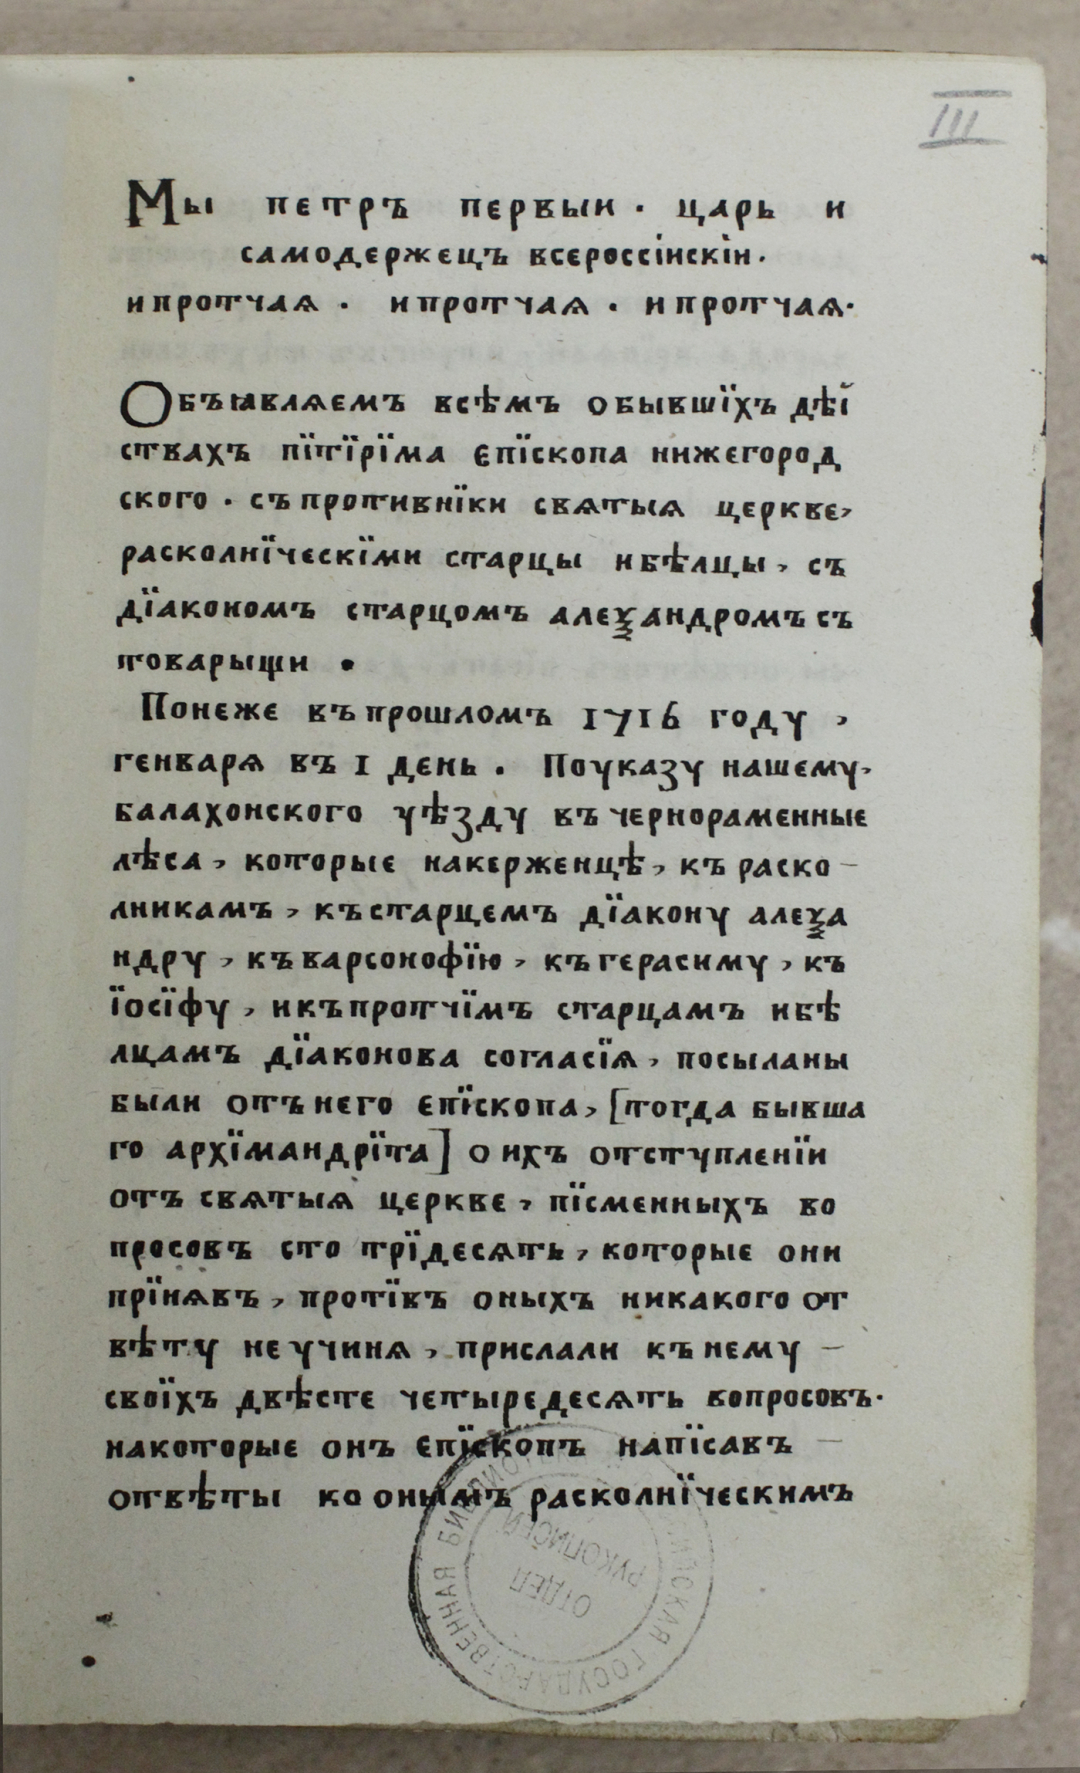 III
Мы петръ первыи · царь и
самодержецъ всероссiискiи.
и протчаѧ . и протчаѧ . и протчаѧ.
Объꙗвлѧемъ всѣмъ о бывшїхъ дѣй
ствахъ пїтїрїма епїскопа нижегород
ского . съ противнїки свѧтыѧ церкве,
расколнїческїми старцы и бѣлцы, съ
дїакономъ старцомъ алеѯандромъ съ
товарыщи •
Понеже въ прошломъ 1716 году,
генварѧ въ 1 день. По указу нашему,
балахонского уѣзду въ чернораменные
лѣса, которые на керженцѣ, къ раско–
лникамъ, къ старцемъ дїакону алеѯа
ндру, къ варсонофїю, къ герасиму, къ
їосїфу, и къ протчїмъ старцамъ и бѣ
лцамъ дїаконова согласїѧ, посыланы
были отъ него епїскопа, [тогда бывша
го архїмандрїта] о ихъ отступленїи
отъ свѧтыѧ церкве, пїсменныхъ во
просовъ сто трїдесѧть, которые они
прїнѧвъ, протївъ оныхъ никакого от
вѣту не учинѧ, прислали къ нему –
своїхъ двѣсте четыредесѧть вопросовъ.
на которые онъ епїскопъ напїсавъ –
отвѣты ко онымъ расколнїческимъ
РОССИЙСКАЯ ГОСУДАРСТВЕННАЯ БИБЛИОТЕКА
ОТДЕЛ
РУКОПИСЕЙ